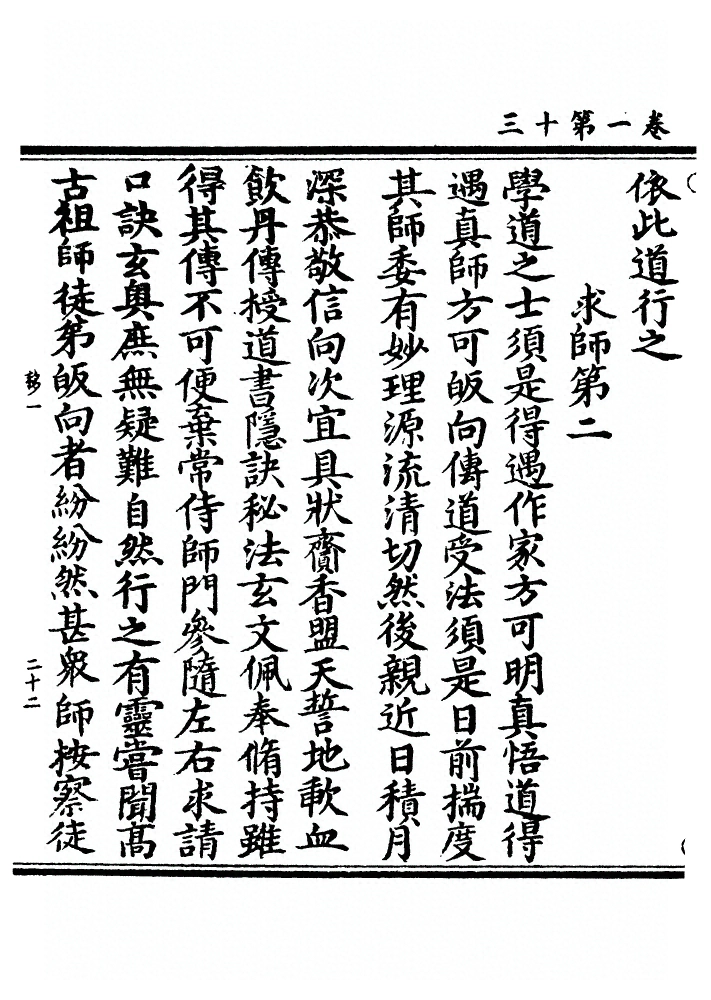 三十第一卷
依此道行之
求師第二
學道之士須是得遇作家方可明真悟道得
遇真師方可皈向傳道受法須是日前揣度
其師委有妙理源流清切然後親近日積月
深恭敬信向次宜具狀齎香盟天誓地歃血
飲丹傳授道書隱訣秘法玄文佩奉脩持雖
得其傳不可便棄常侍師門參隨左右求請
口訣玄奧庶無疑難自然行之有靈嘗聞高
古祖師徒弟皈向者紛紛然甚衆師按察徒
二十二